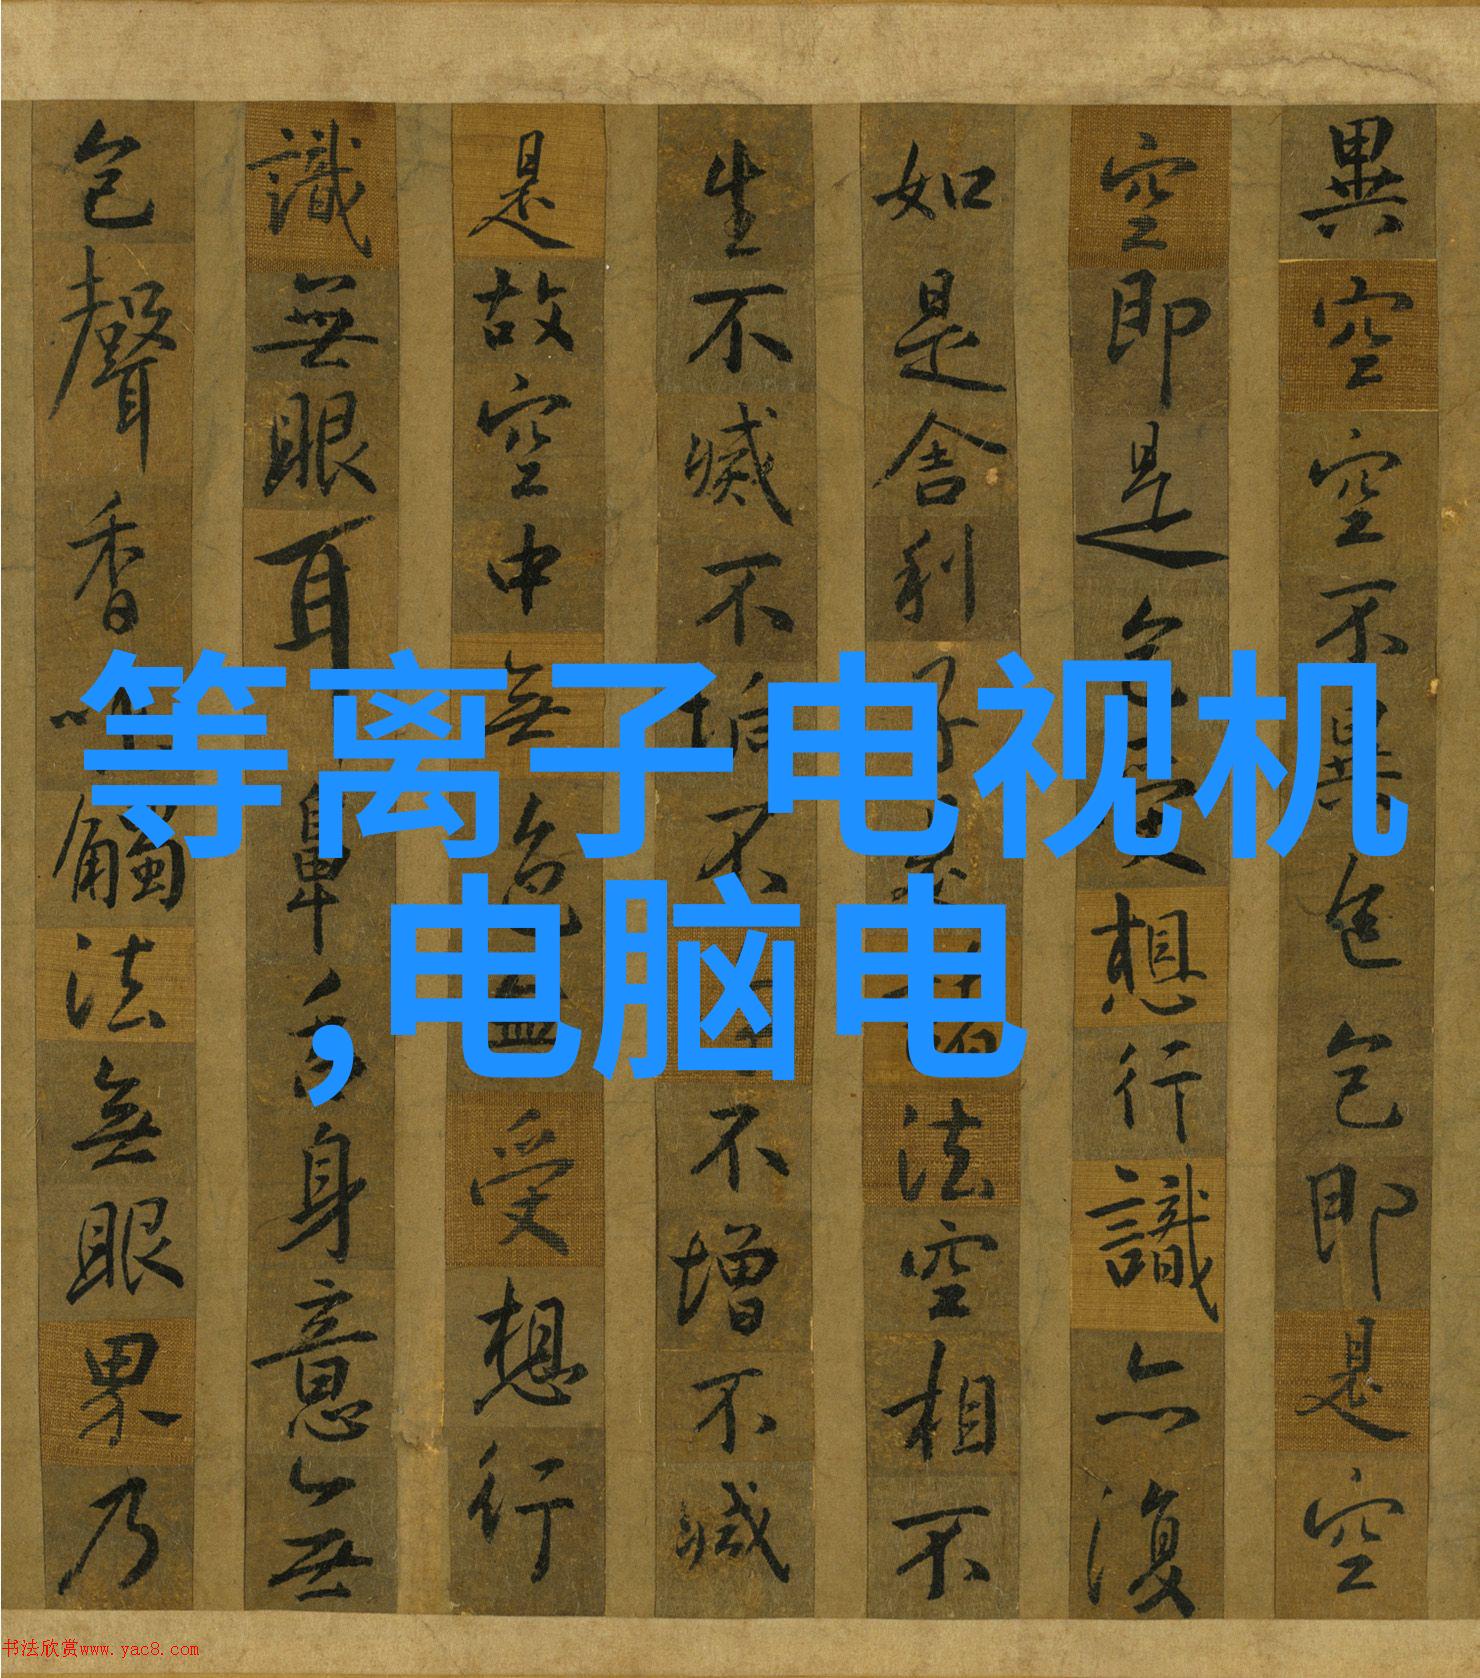 異空空不異色色即是空
空即是色受想行識亦復
如是舍利子是諸法空相不
生不滅不垢不不增不減
是故空中無色無受想行
識無眼耳鼻舌身意無
色聲香味觸法無眼界乃
等离子电视机
,电脑电
书法欣赏www.yac8.com